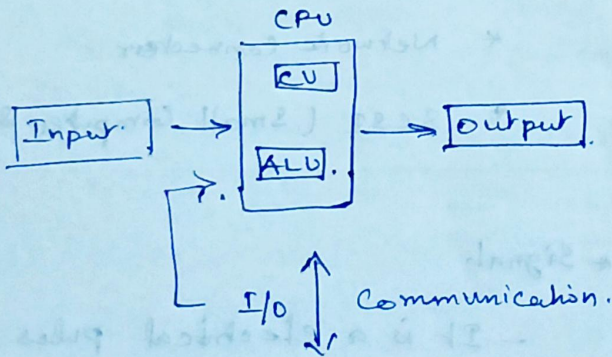 CPU
CU
Input.
Output.
ALU.
I/O
Communication.